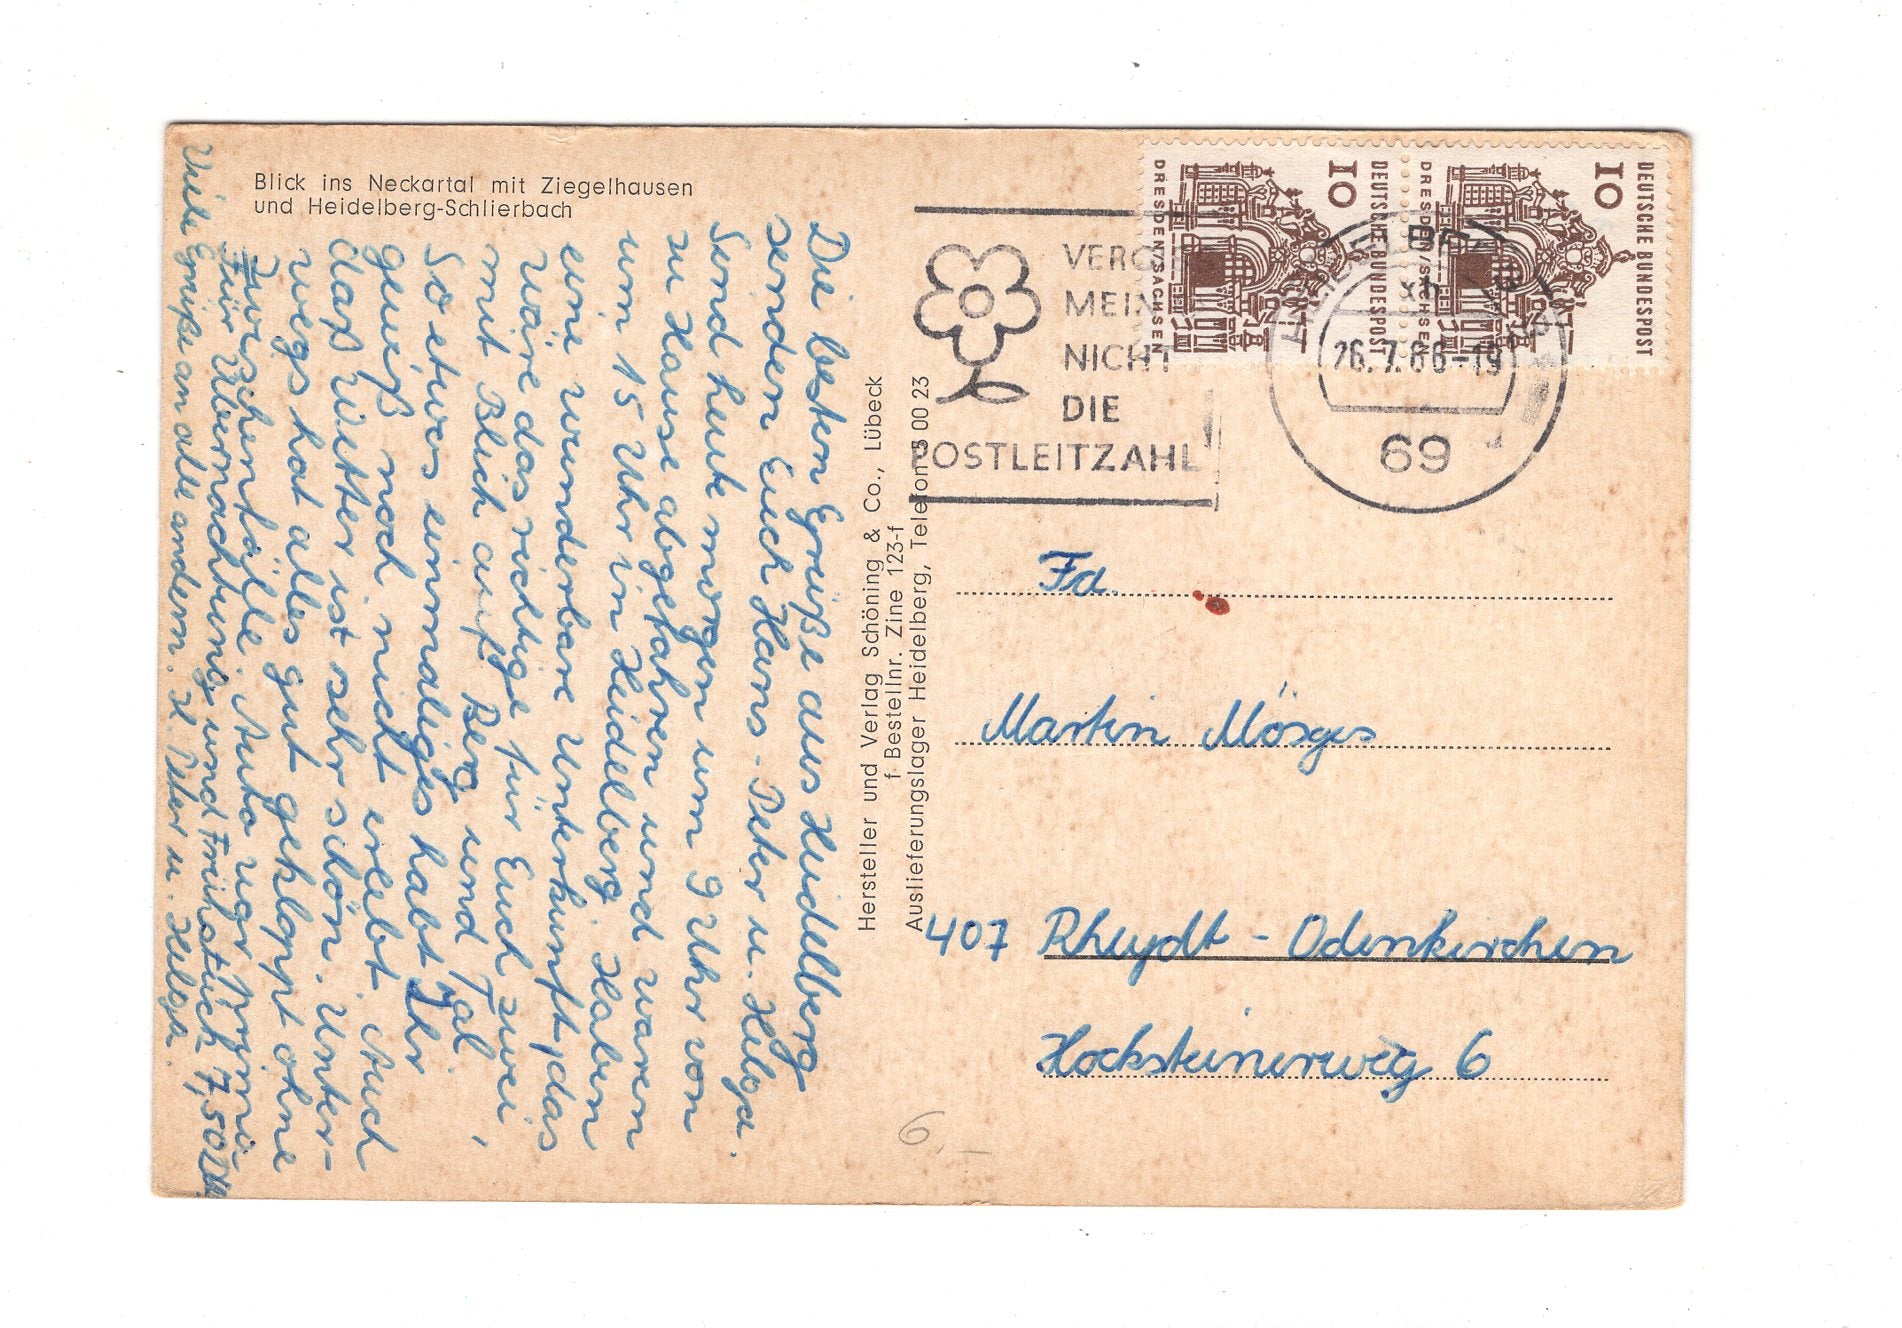 Blick ins Neckartal mit Ziegelhausen
und Heidelberg-Schlierbach
Die besten Grüße aus Heidelberg
senden Euch Hans-Peter u. Helga.
Sind heute morgen um 9 Uhr von
zu Hause abgefahren und waren
um 15 Uhr in Heidelberg. Haben
eine wunderbare Unterkunft, das
wäre das richtige für Euch zwei,
mit Blick auf Berg und Tal,
so etwas einmaliges habt Ihr
gewiß noch nicht erlebt. Auch
das Wetter ist sehr schön. Unter-
wegs hat alles gut geklappt ohne
Zwischenfälle. Auto war prima
Für Übernachtung und Frühstück 7,50 DM.
Viele Grüße an alle andern. H. Peter u. Helga.
Hersteller und Verlag Schöning & Co., Lübeck
f Bestellnr. Zine 123-f
Auslieferungslager Heidelberg, Telefon 3 00 23
VERGISS
MEIN
NICHT
DIE
POSTLEITZAHL
DRESDEN/SACHSEN
10
DEUTSCHE BUNDESPOST
DRESDEN/SACHSEN
10
DEUTSCHE BUNDESPOST
xh
26.7.66-19
69
Fa.
Martin Mösges
407 Rheydt - Odenkirchen
Hocksteinerweg 6
6